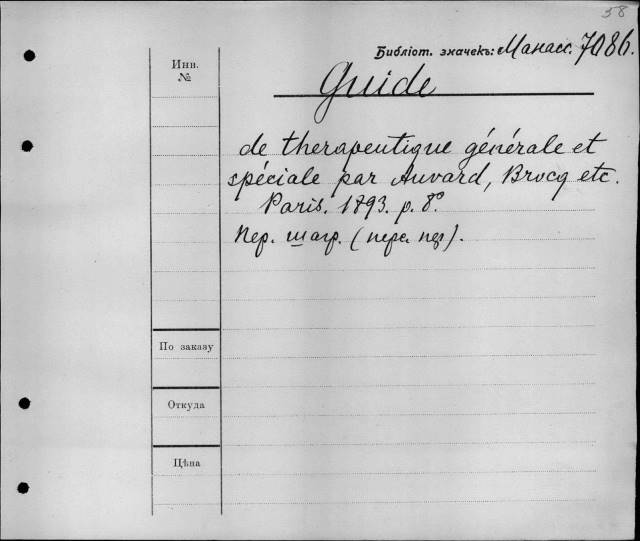 58
Библіот. значекъ: Манасс. 7086.
Инв.
№
Guide
de therapeutique générale et
spéciale par Auvard, Brocq etc.
Paris. 1893. p. 8°
Пер. шагр.
По заказу
Откуда
Цѣна